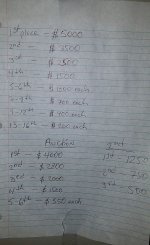 1st place - $5000
2nd - $3500
3rd - $2500
4th - $1500
5-6th - $1000 each
7-8th - $700 each
- $400 each
13-16th - $200 each
Auction
1st - $4000
2nd - $2800
3rd - $2000
4th - $1500
5-6th - $550 each
2nd
1st - 1250
2nd - 750
3rd 500